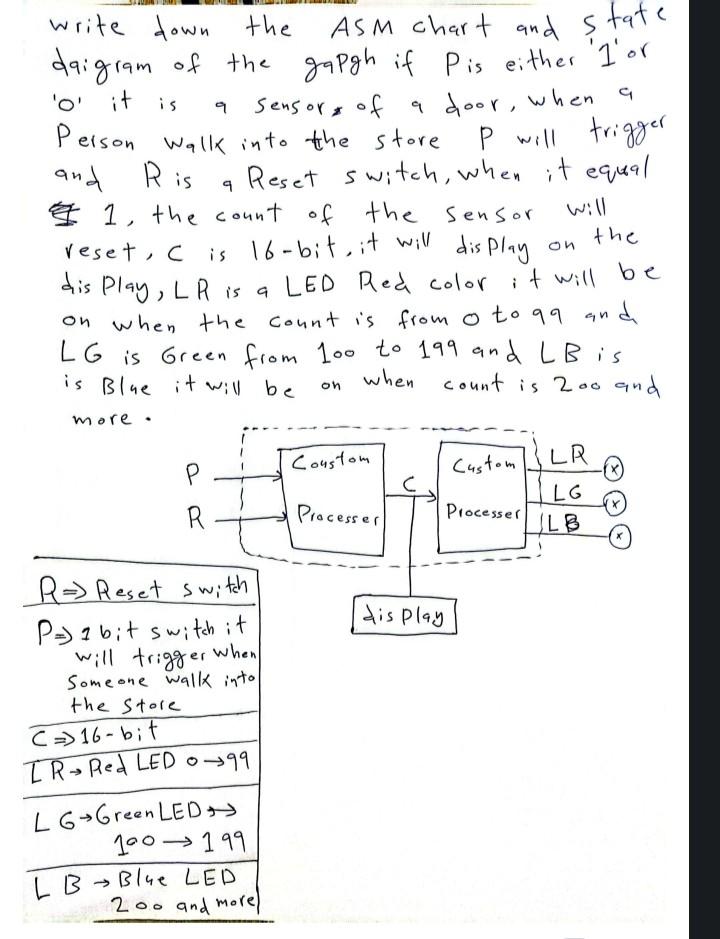 write down the ASM chart and state
daigram of the gapgh if P is either '1' or
'0' it is a sensors of a door, when a
Person walk into the store P will trigger
and R is a Reset switch, when it equal
1, the count of the sensor will
reset, C is 16-bit, it will display on the
display, LR is a LED Red color it will be
on when the count is from 0 to 99 and
LG is Green from 100 to 199 and LB is
is Blue it will be on when count is 200 and
more.
P
R
Coustom
Processer
C
Custom
Processer
LR
LG
LB
display
R⇒Reset switch
P⇒1 bit switch it
will trigger when
Someone walk into
the store
C⇒16-bit
LR→Red LED 0→99
LG→Green LED→
100→199
LB→Blue LED
200 and more